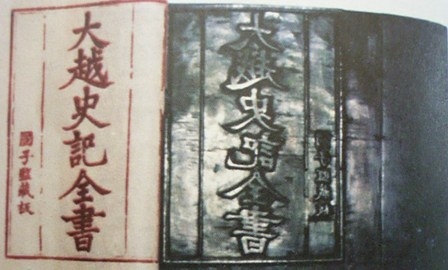 大越史記全書
國子監藏板
大越史記全書